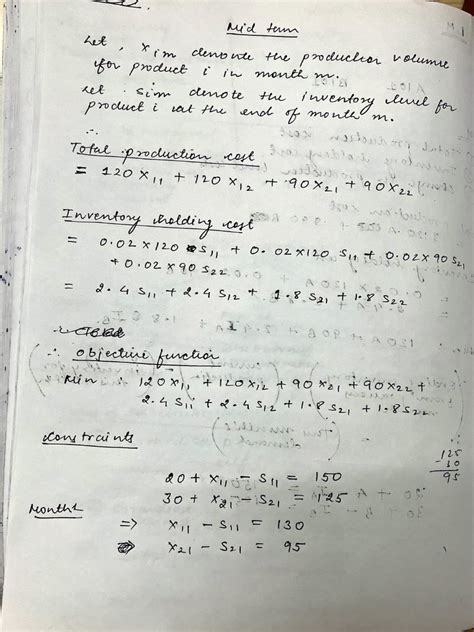 Mid term
Let, x im denote the production volume
for product i in month m.
Let sim denote the inventory level for
product i at the end of month m.
∴
Total production cost
= 120 x11 + 120 x12 + 90 x21 + 90 x22
Inventory holding cost
= 0.02 x 120 S11 + 0.02 x 120 S11 + 0.02 x 90 S21
+ 0.02 x 90 S22
= 2.4 S11 + 2.4 S12 + 1.8 S21 + 1.8 S22
∴ objective function
Min 120 x11 + 120 x12 + 90 x21 + 90 x22 +
2.4 S11 + 2.4 S12 + 1.8 S21 + 1.8 S22
Constraints
125
-30
95
20 + x11 - S11 = 150
30 + x21 - S21 = 125
Month 1
=> x11 - S11 = 130
x21 - S21 = 95